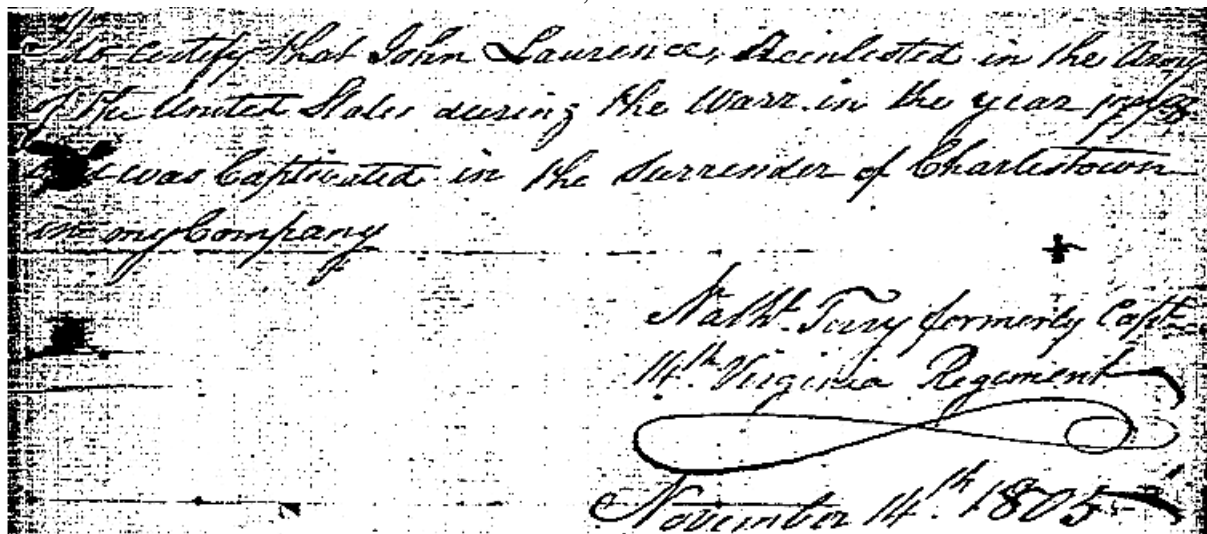 I do certify that John Laurence, Reenlested in the Army
of the United States during the Warr in the year
was Captivated in the Surrender of Charlestown
in my Company
Nathl. Terry formerly Capt
14th Virginia Regiment
November 14th 1805